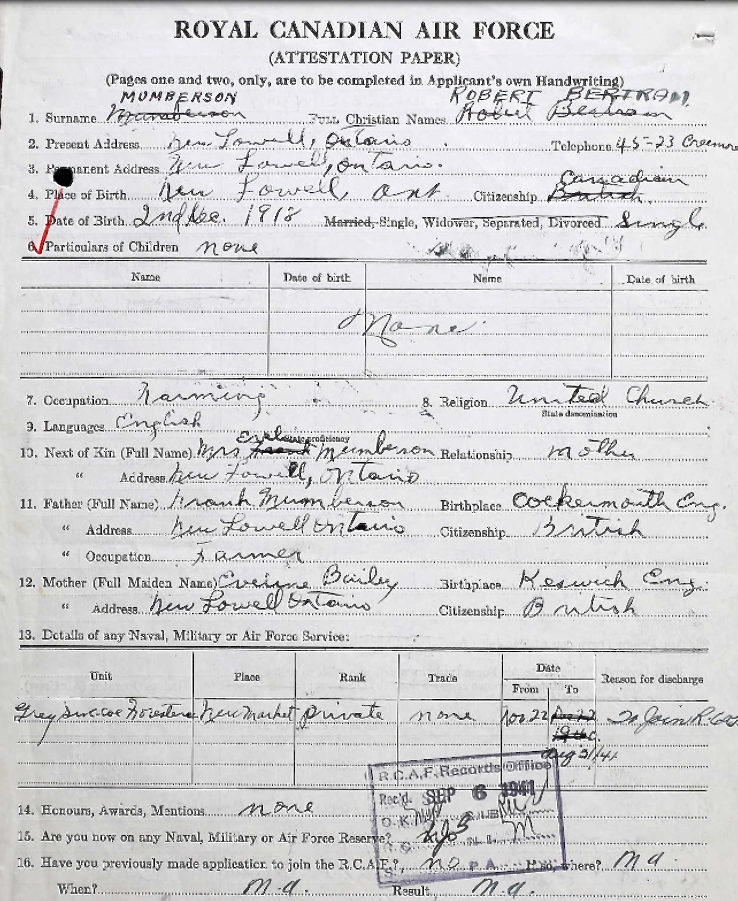 ROYAL CANADIAN AIR FORCE
(ATTESTATION PAPER)
(Pages one and two, only, are to be completed in Applicant's own Handwriting)
MUMBERSON ROBERT BERTRAM
1. Surname Mumberson FULL Christian Names Robert Bertram
2. Present Address New Lowell, Ontario Telephone 45-23 Creemore
3. Permanent Address New Lowell, Ontario.
Canadian
4. Place of Birth New Lowell, Ont. Citizenship British
5. Date of Birth 2nd Dec. 1918 Married, Single, Widower, Separated, Divorced Single
6. Particulars of Children none
Name Date of birth Name Date of birth
None
7. Occupation Farming 8. Religion United Church
State denomination
9. Languages English
State proficiency
10. Next of Kin (Full Name) Mrs Frank Mumberson Relationship mother
" Address New Lowell, Ontario
11. Father (Full Name) Frank Mumberson Birthplace Cockermouth Eng.
" Address New Lowell Ontario Citizenship British
" Occupation Farmer
12. Mother (Full Maiden Name) Eveline Bailey Birthplace Keswick Eng.
" Address New Lowell Ontario Citizenship British
13. Details of any Naval, Military or Air Force Service:
Unit Place Rank Trade Date Reason for discharge
From To
Grey Simcoe Foresters New Market Private none Nov 22 To Join R.C.A.F.
Aug 31/41
R.C.A.F. Records Office
Rec'd. SEP 6 1941
14. Honours, Awards, Mentions none
15. Are you now on any Naval, Military or Air Force Reserve?
16. Have you previously made application to join the R.C.A.F.? no If so, where? n.a.
When? n.a. Result n.a.